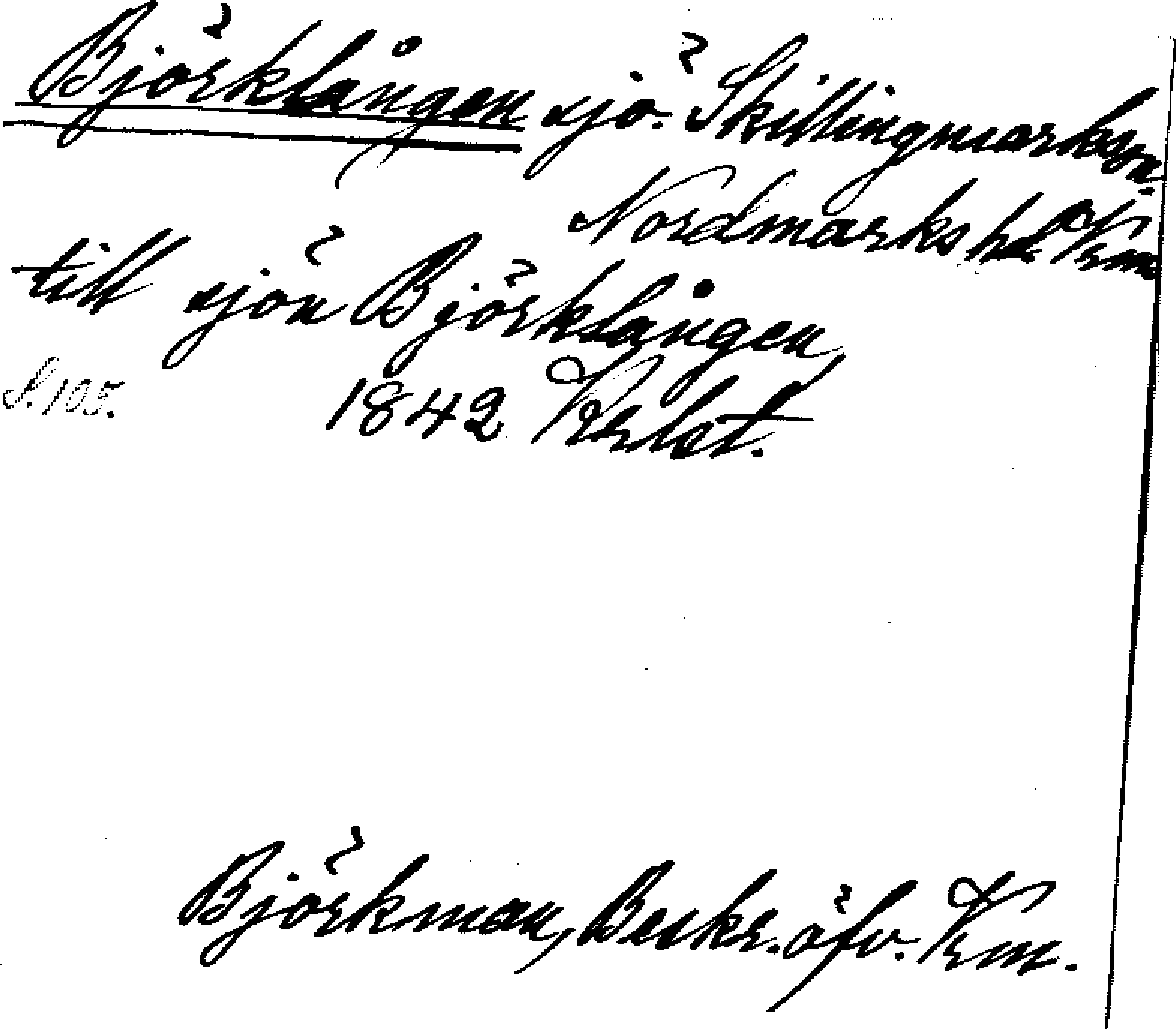 Björklången sjö. Skillingmarks sn.
Nordmarks hd. Vrm
till sjön Björklången,
S. 105. 1842
Björkman, Beskr. öfv. Vrm.